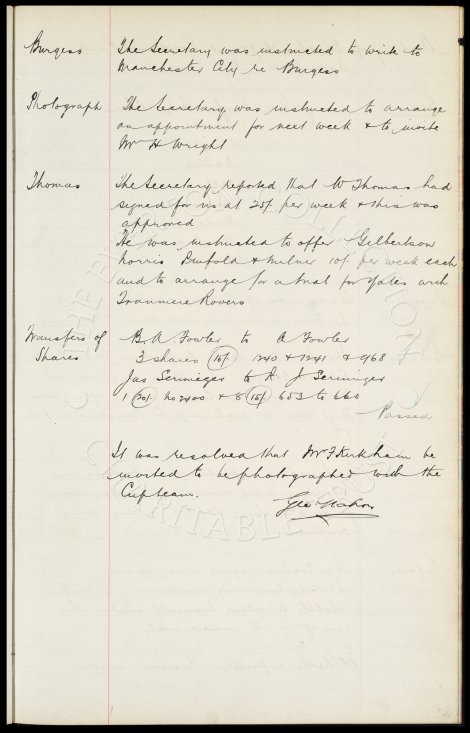 Burgess The Secretary was instructed to write to
Manchester City re Burgess
Photograph The Secretary was instructed to arrange
an appointment for next week & to invite
Mr H Wright
Thomas The Secretary reported that W Thomas had
signed for us at 25/ per week & this was
approved
He was instructed to offer Gilbertson
Norris Penfold & Milner 10/ per week each
and to arrange for a trial for Yates with
Tranmere Rovers
Transfers of B. A. Fowler to A Fowler
Shares 3 shares 10/ 1240 & 1241 & 968
Jas Scrimiger to A. J Scrimiger
1 30/ No 2400 & 8 10/ 653 to 660
Passed
It was resolved that Mr F Kirkham be
invited to be photographed with the
Cup team.
Geo Mahon
THE EVERTON COLLECTION
CHARITABLE TRUST